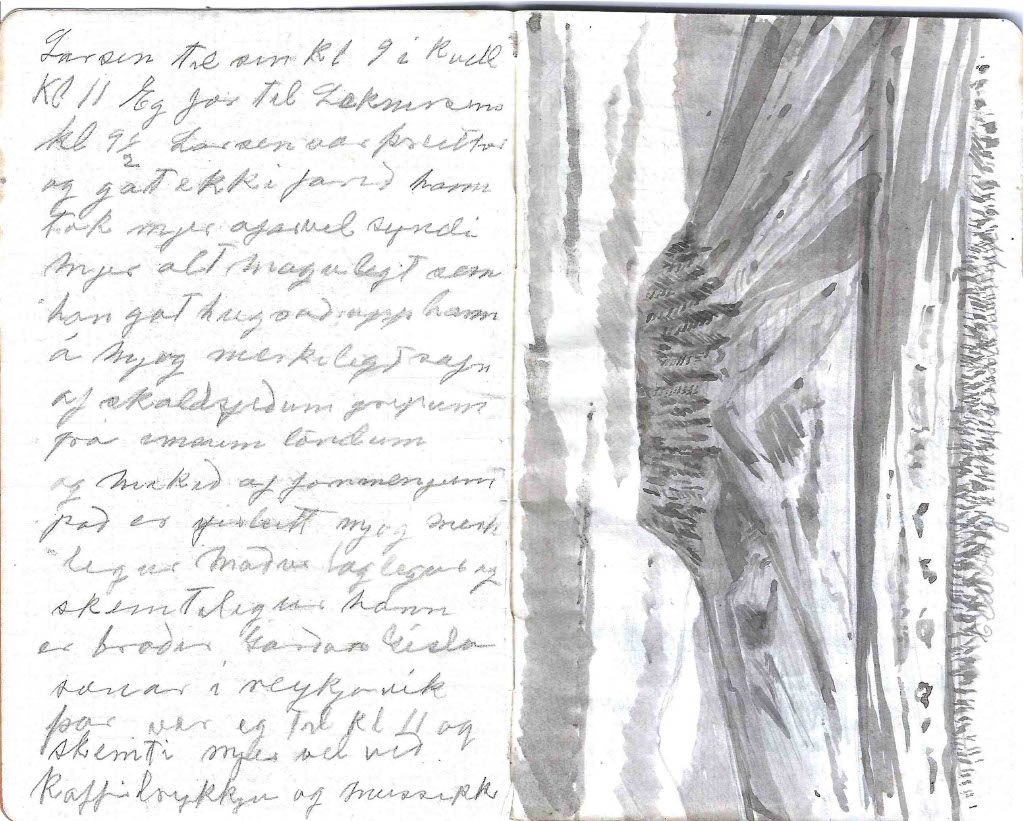 Larsen til sin kl 9 i kvöld
Kl 11 Eg for til Læknirsins
kl 9½ Larsen var þreittur
og gat ekki farið hann
tok mjer ofarvel syndi
mjer alt mögulegt sem
han gat hugsað upp hann
á mjög merkilegt safn
af skaldgedum gripum
frá imsum löndum
og mikið af fornmenjum
það er mjog merk
legur maður laglegur og
skemtilegur hann
er broðir Garðars Gisla
sonar i reykjavik
þar var eg til kl 11 og
skemti mjer vel við
Kaffidrykkju og mussikk